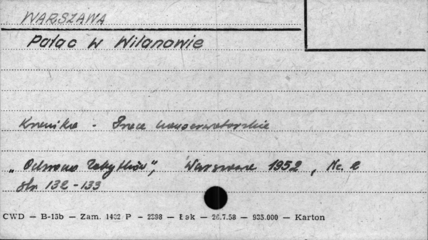 WARSZAWA
Pałac w Wilanowie
Kronika - Prace konserwatorskie
„Ochrona Zabytków", Warszawa 1952, Nr. 2
str 132-133
CWD — B-13b — Zam. 1402 P — 2298 — Łek — 26.7.58 — 935.000 — Karton